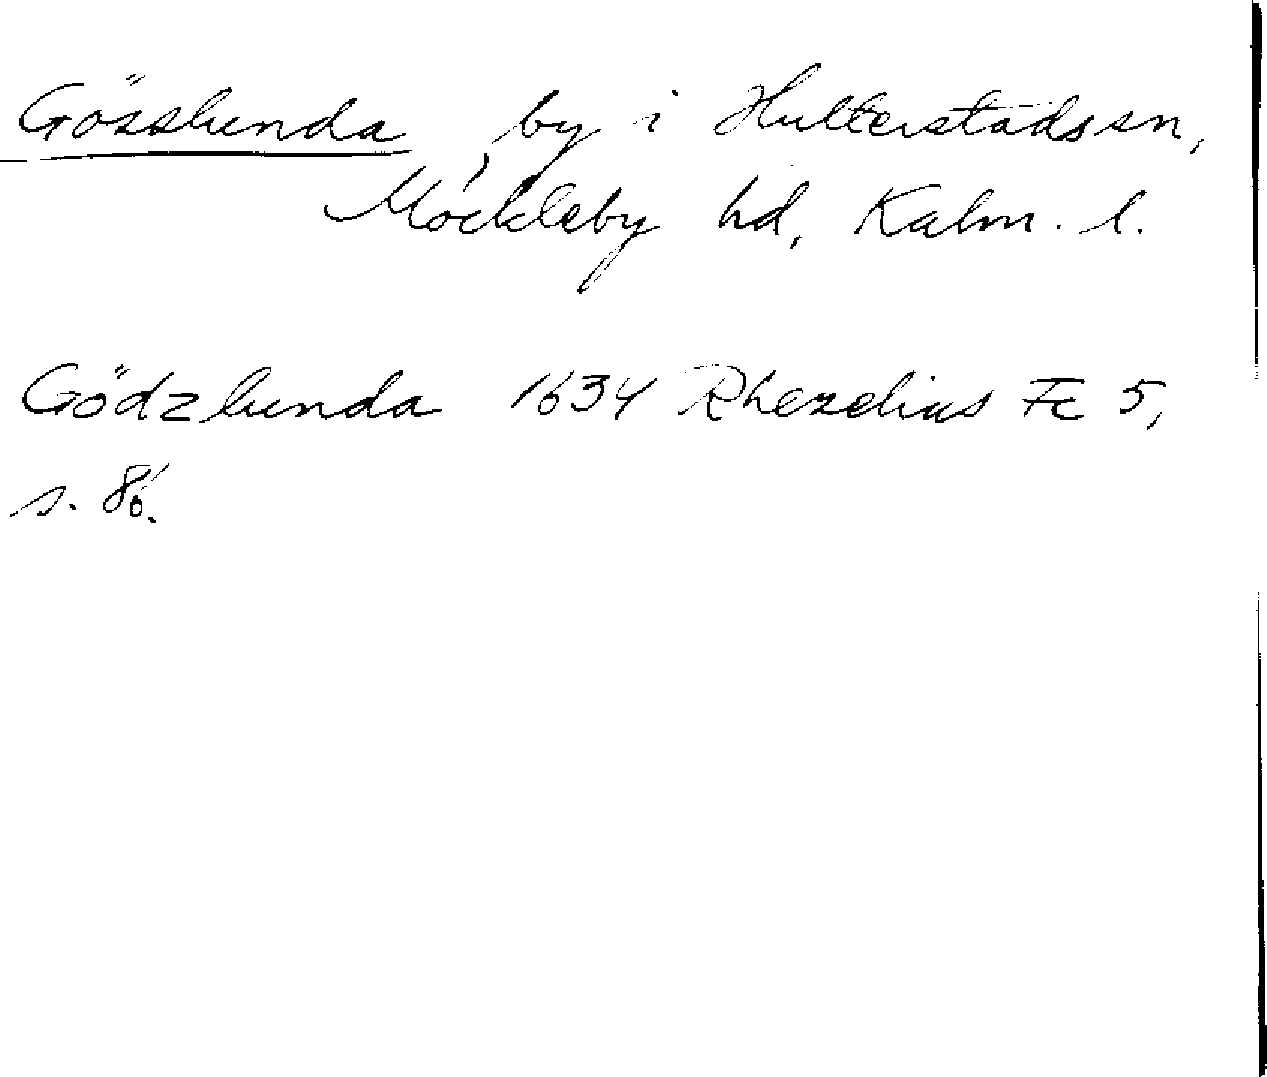 Gösslunda, by i Hulterstads sn,
Möckleby hd, Kalm. l.
Gödzlunda 1634 Rhezelius Fc 5,
s. 86.